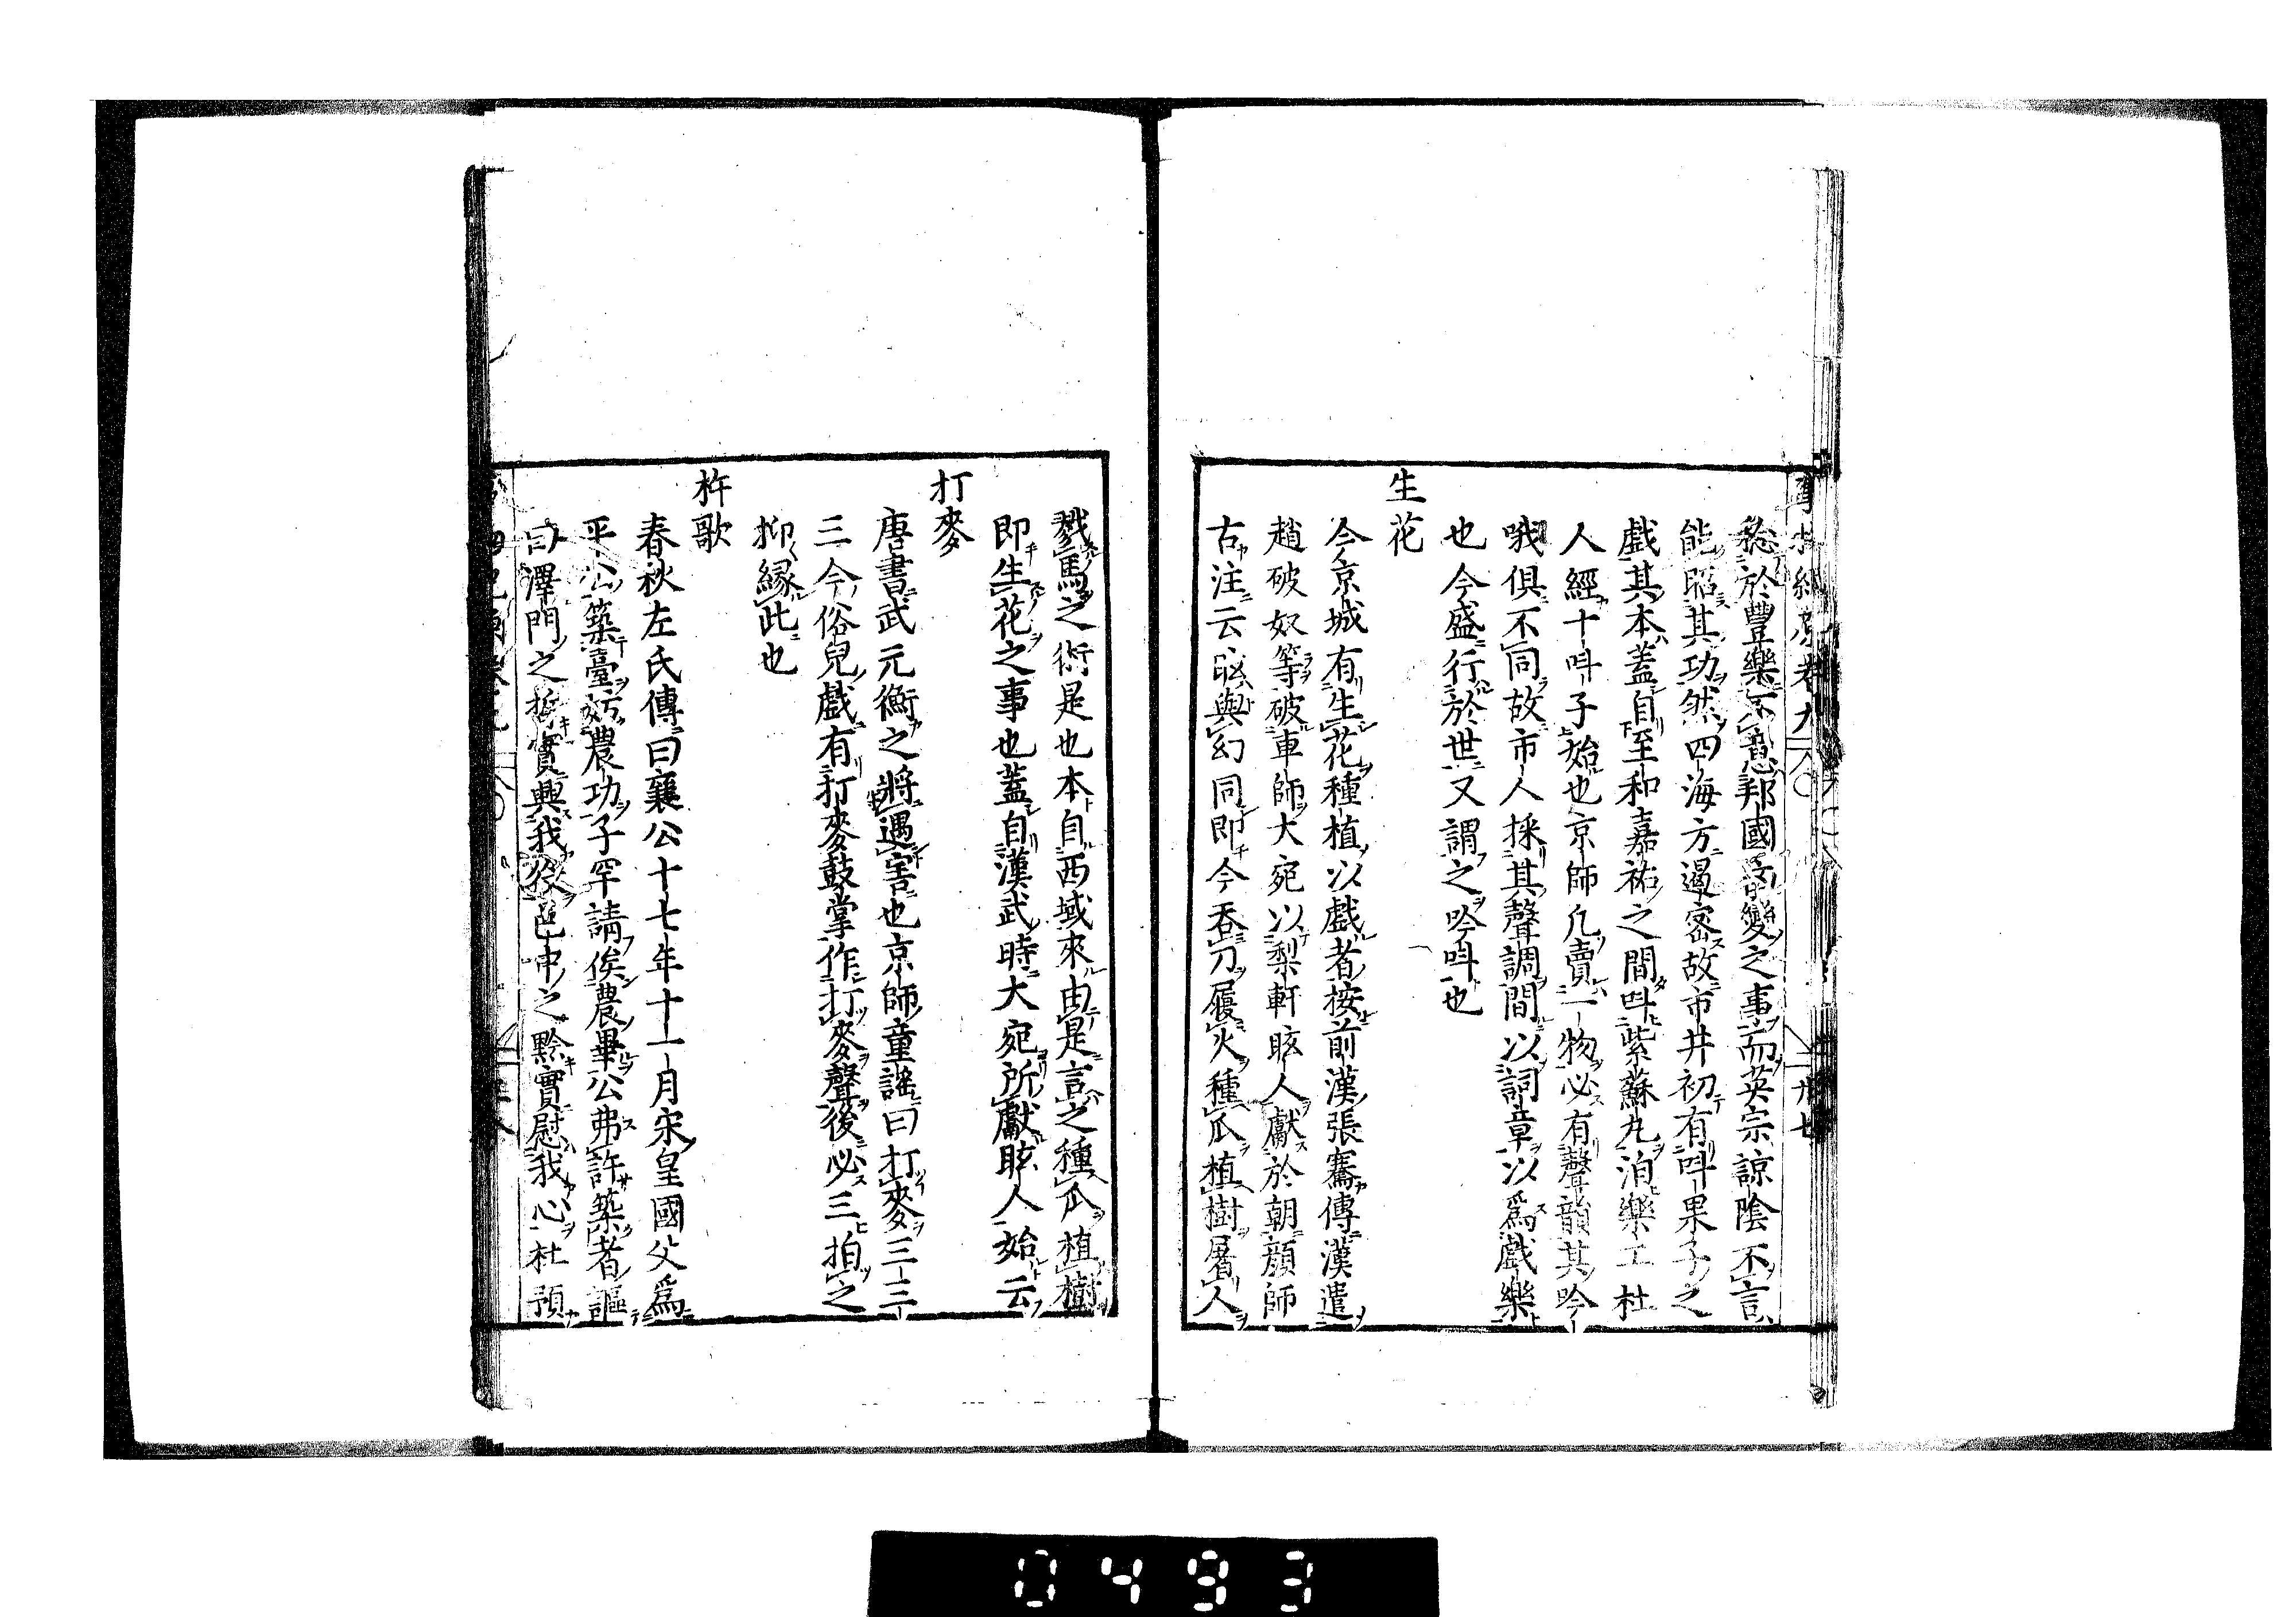 於豐樂不意邦國之事而英宗諒陰不言
能昭其功然四海方遏密故市井初有呌果子之
戲其本蓋自至和嘉祐之間呌紫蘇丸洎樂工杜
人經十呌子始也京師凡賣一物必有聲韻其吟
哦俱不同故市人採其聲調間以詞章以爲戲樂
也今盛行於世又謂之吟呌也
生花
今京城有生花種植以戲者按前漢張騫傳漢遣
趙破奴等破車師大宛以梨軒眩人獻於朝顔師
古注云眩與幻同即今吞刀履火種瓜植樹屠人
戮馬之術是也本自西域來由是言之種瓜植樹
即生花之事也蓋自漢武時大宛所獻眩人始云
打麥
唐書武元衡之將遇害也京師童謡曰打麥三三
三今俗兒戲有打麥鼓掌作打麥聲後必三拍之
抑縁此也
杵歌
春秋左氏傳曰襄公十七年十一月宋皇國父爲
平公築臺妨農功子罕請俟農畢公弗許築者謳
曰澤門之晳實興我役邑中之黔實慰我心杜預
0493